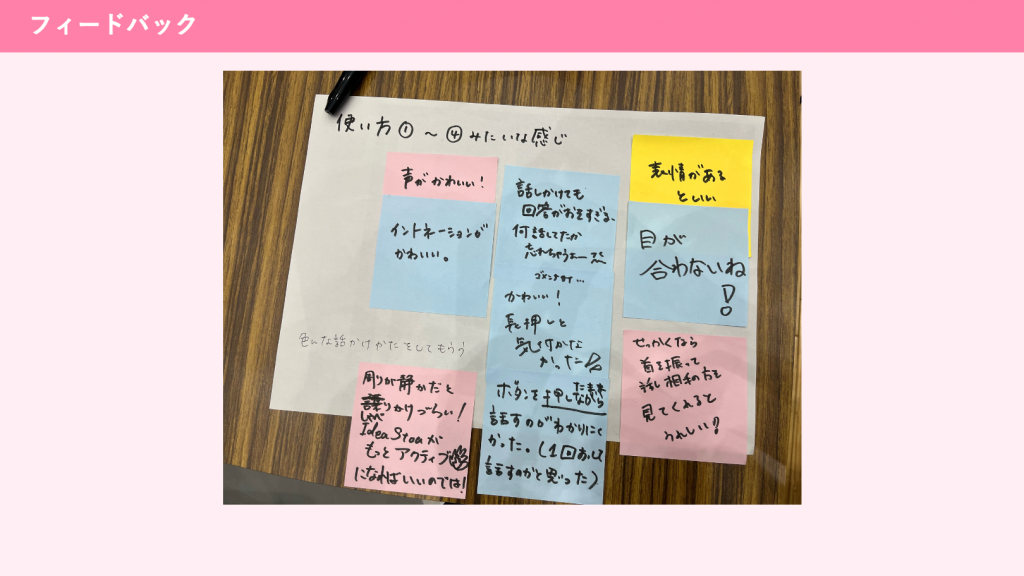 フィードバック
使い方① 〜 ④みたいな感じ
声がかわいい!
イントネーションが
かわいい。
話しかけても
回答がおそすぎる、
何話してたか
忘れちゃうよー
ゴメンナサイ…
かわいい!
長押しと
気づかな
かった
ボタンを押しながら
話すのがわかりにく
かった。(1回おして
話すのかと思った)
表情がある
といい
目が
合わないね
!
せっかくなら
首を振って
話し相手の方を
見てくれると
うれしい!
色んな話かけかたをしてもらう
周りが静かだと
しゃべ
りかけづらい!
Idea Stoaが
もっとアクティブ
になればいいのでは!